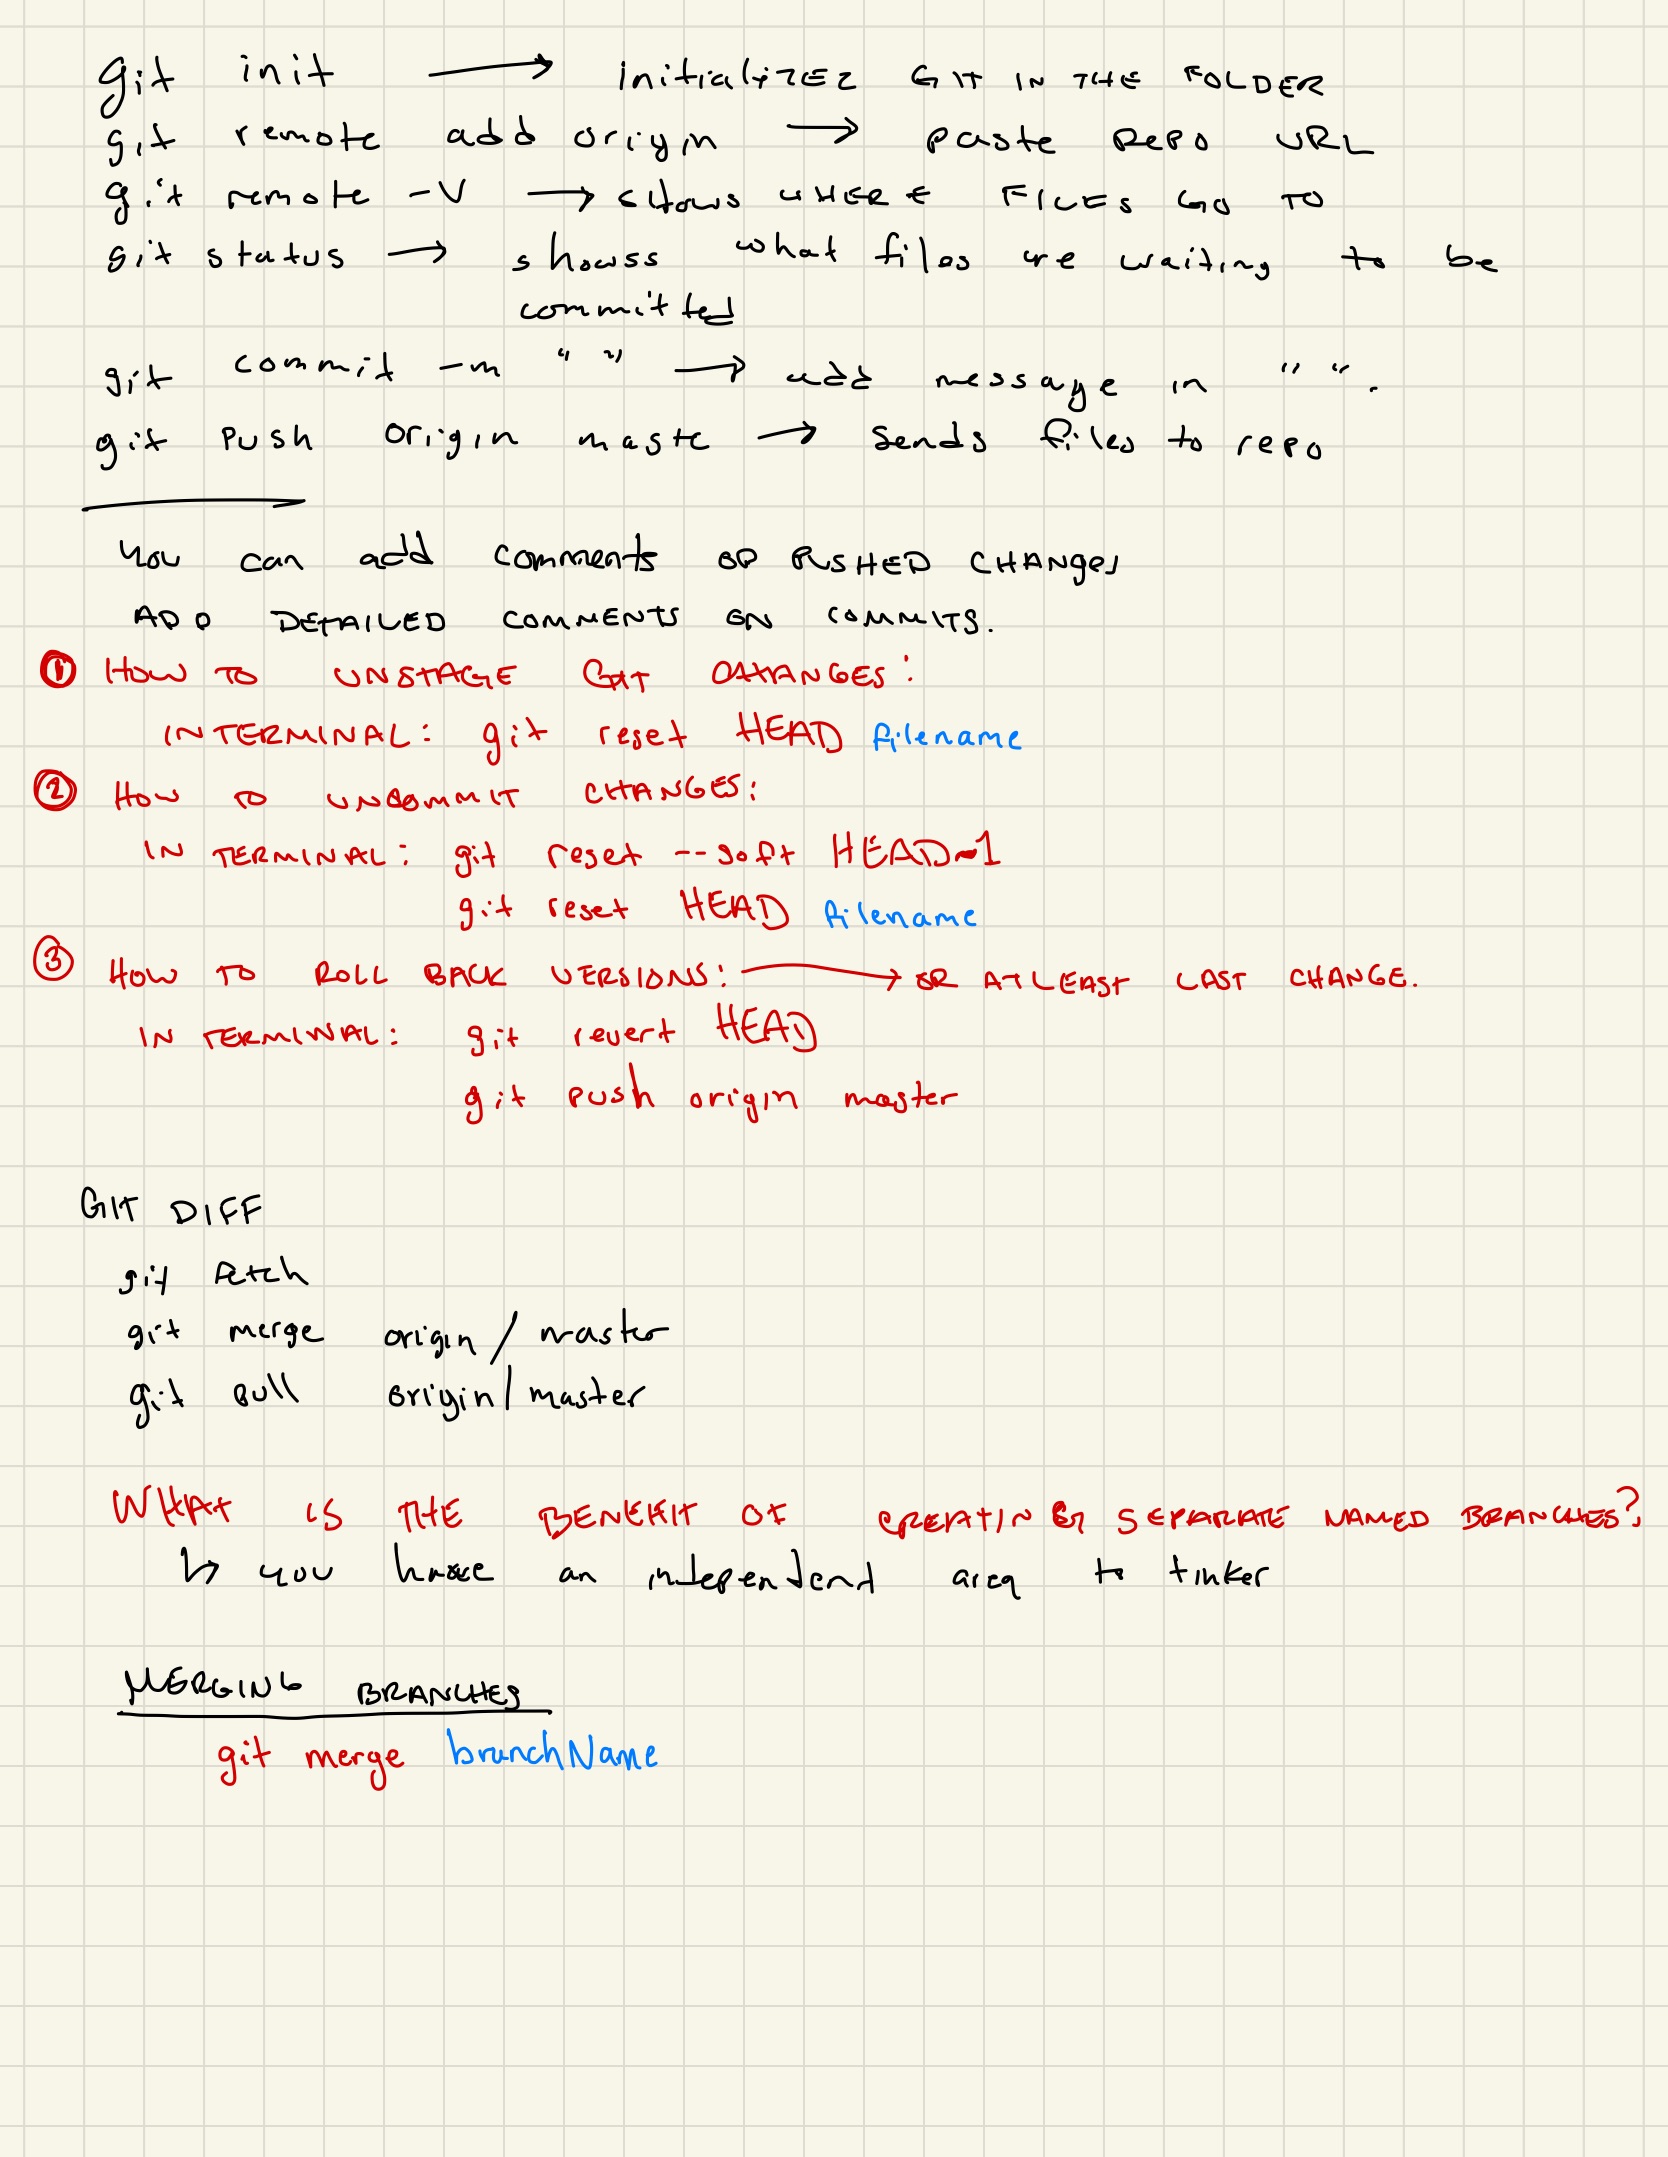 git init → initializez GIT IN THE FOLDER
git remote add origin → paste REPO URL
git remote -v → SHOWS WHERE FILES GO TO
git status → showss what files are waiting to be
committed
git commit -m " " → add message in " ".
git push origin maste → sends files to repo
You can add comments OP PUSHED CHANGES
ADD DETAILED COMMENTS ON COMMITS.
① HOW TO UNSTAGE GIT CHANGES:
IN TERMINAL: git reset HEAD filename
② HOW TO UNCOMMIT CHANGES:
IN TERMINAL: git reset --soft HEAD~1
git reset HEAD filename
③ HOW TO ROLL BACK VERSIONS: → OR AT LEAST LAST CHANGE.
IN TERMINAL: git revert HEAD
git push origin master
GIT DIFF
git fetch
git merge origin/master
git pull origin/master
WHAT IS THE BENEFIT OF CREATING SEPARATE NAMED BRANCHES?
↳ you have an independent area to tinker
MERGING BRANCHES
git merge branchName